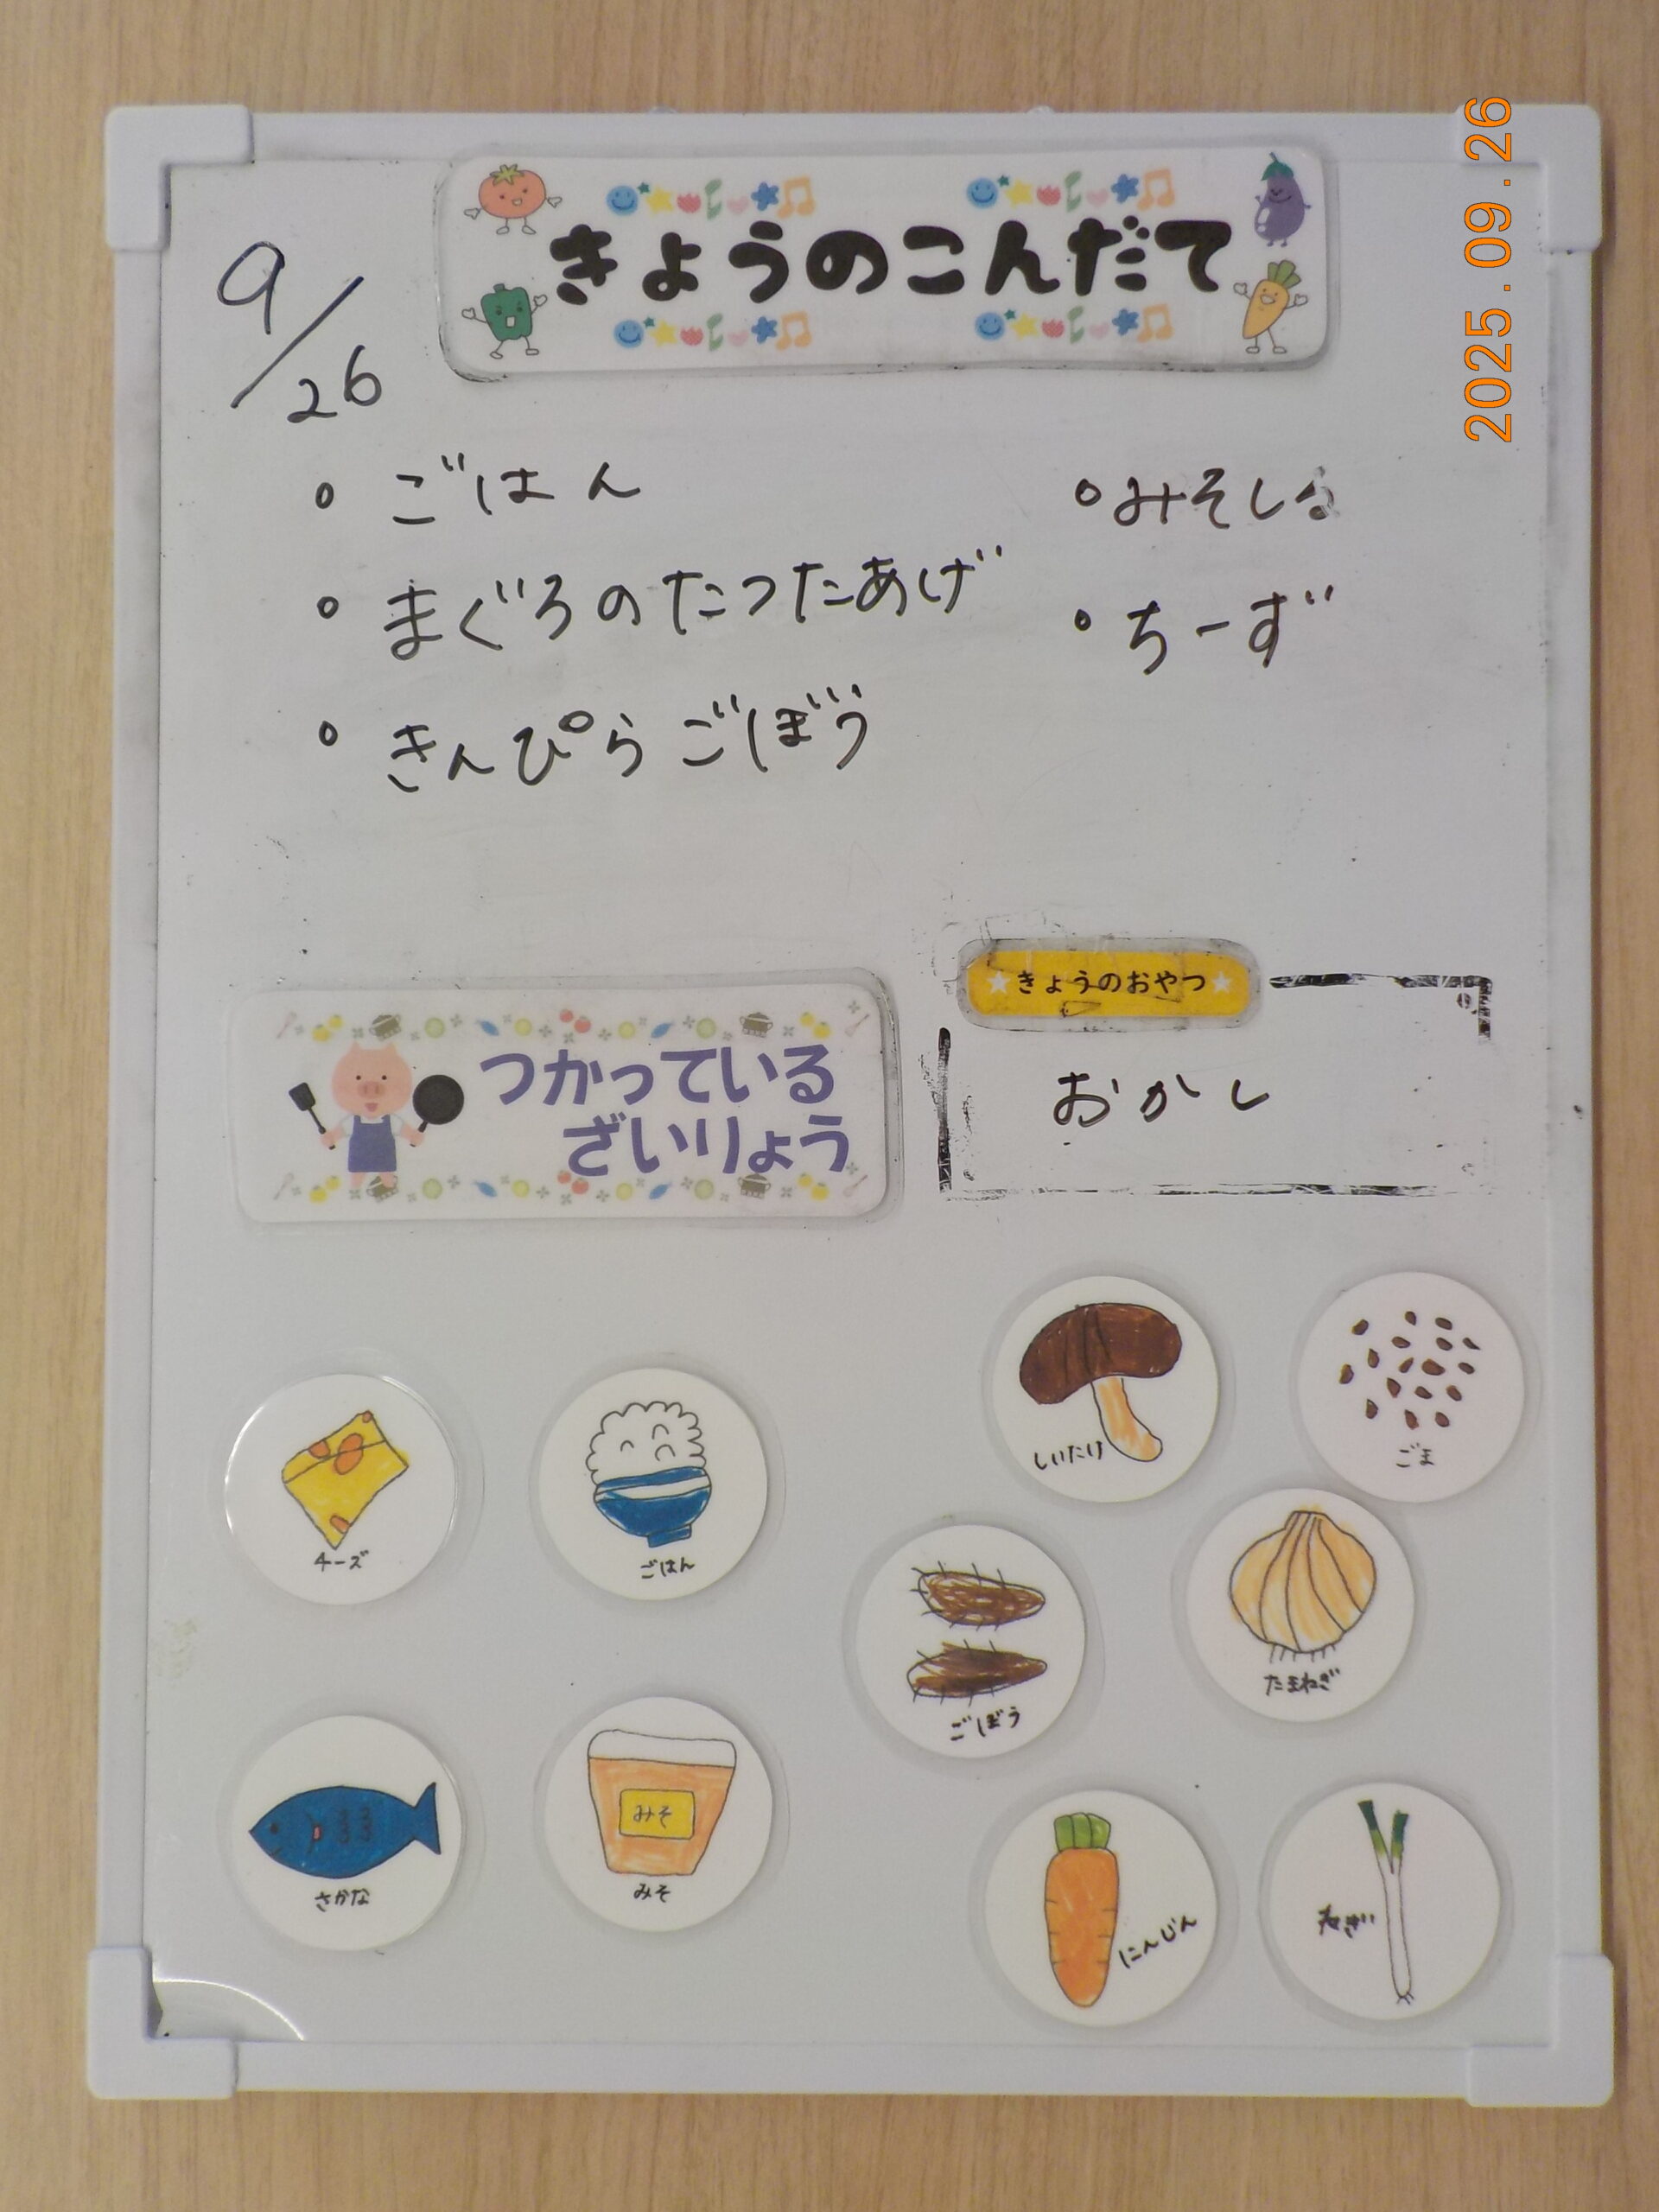 2025.09.26
きょうのこんだて
9/26
。ごはん
。まぐろのたつたあげ
。きんぴらごぼう
。みそしる
。ちーず
つかっている
ざいりょう
★きょうのおやつ★
おかし
しいたけ
ごま
チーズ
ごはん
ごぼう
たまねぎ
さかな
みそ
みそ
にんじん
ねぎ